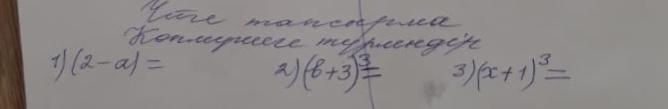 Үйге тапсырма
Көпмүшеге түрлендір
1) (2-a) = 2) (b+3)³= 3) (x+1)³=